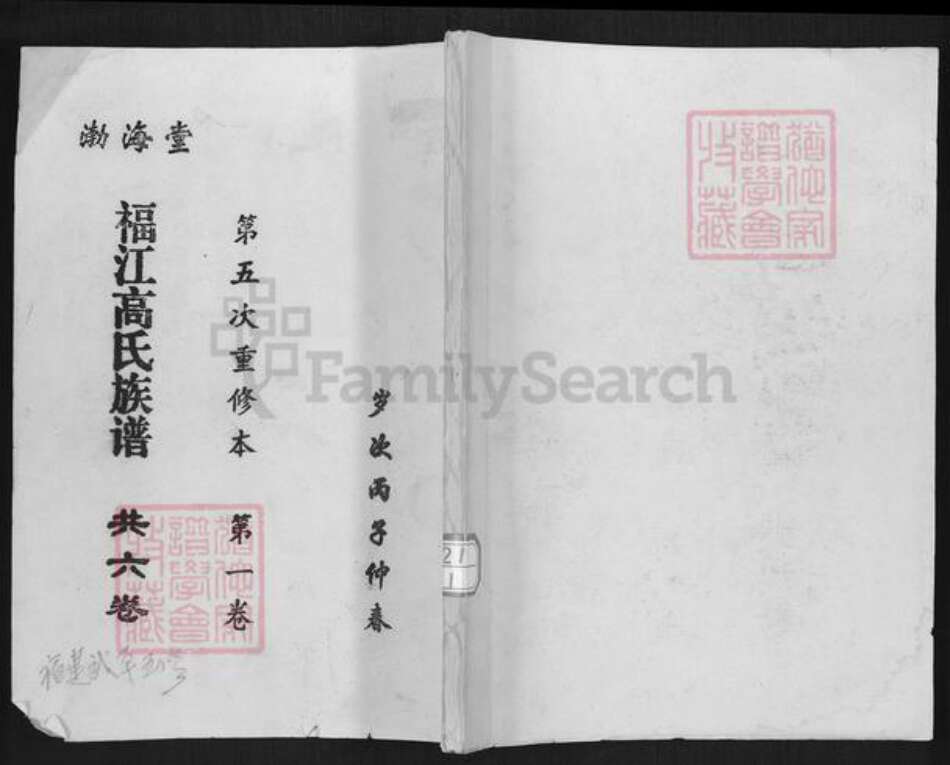 渤海堂
福江高氏族谱
共六卷
第五次重修本
第一卷
岁次丙子仲春
猶他家
譜學會
收藏
猶他家
譜學會
收藏
FamilySearch
21
1